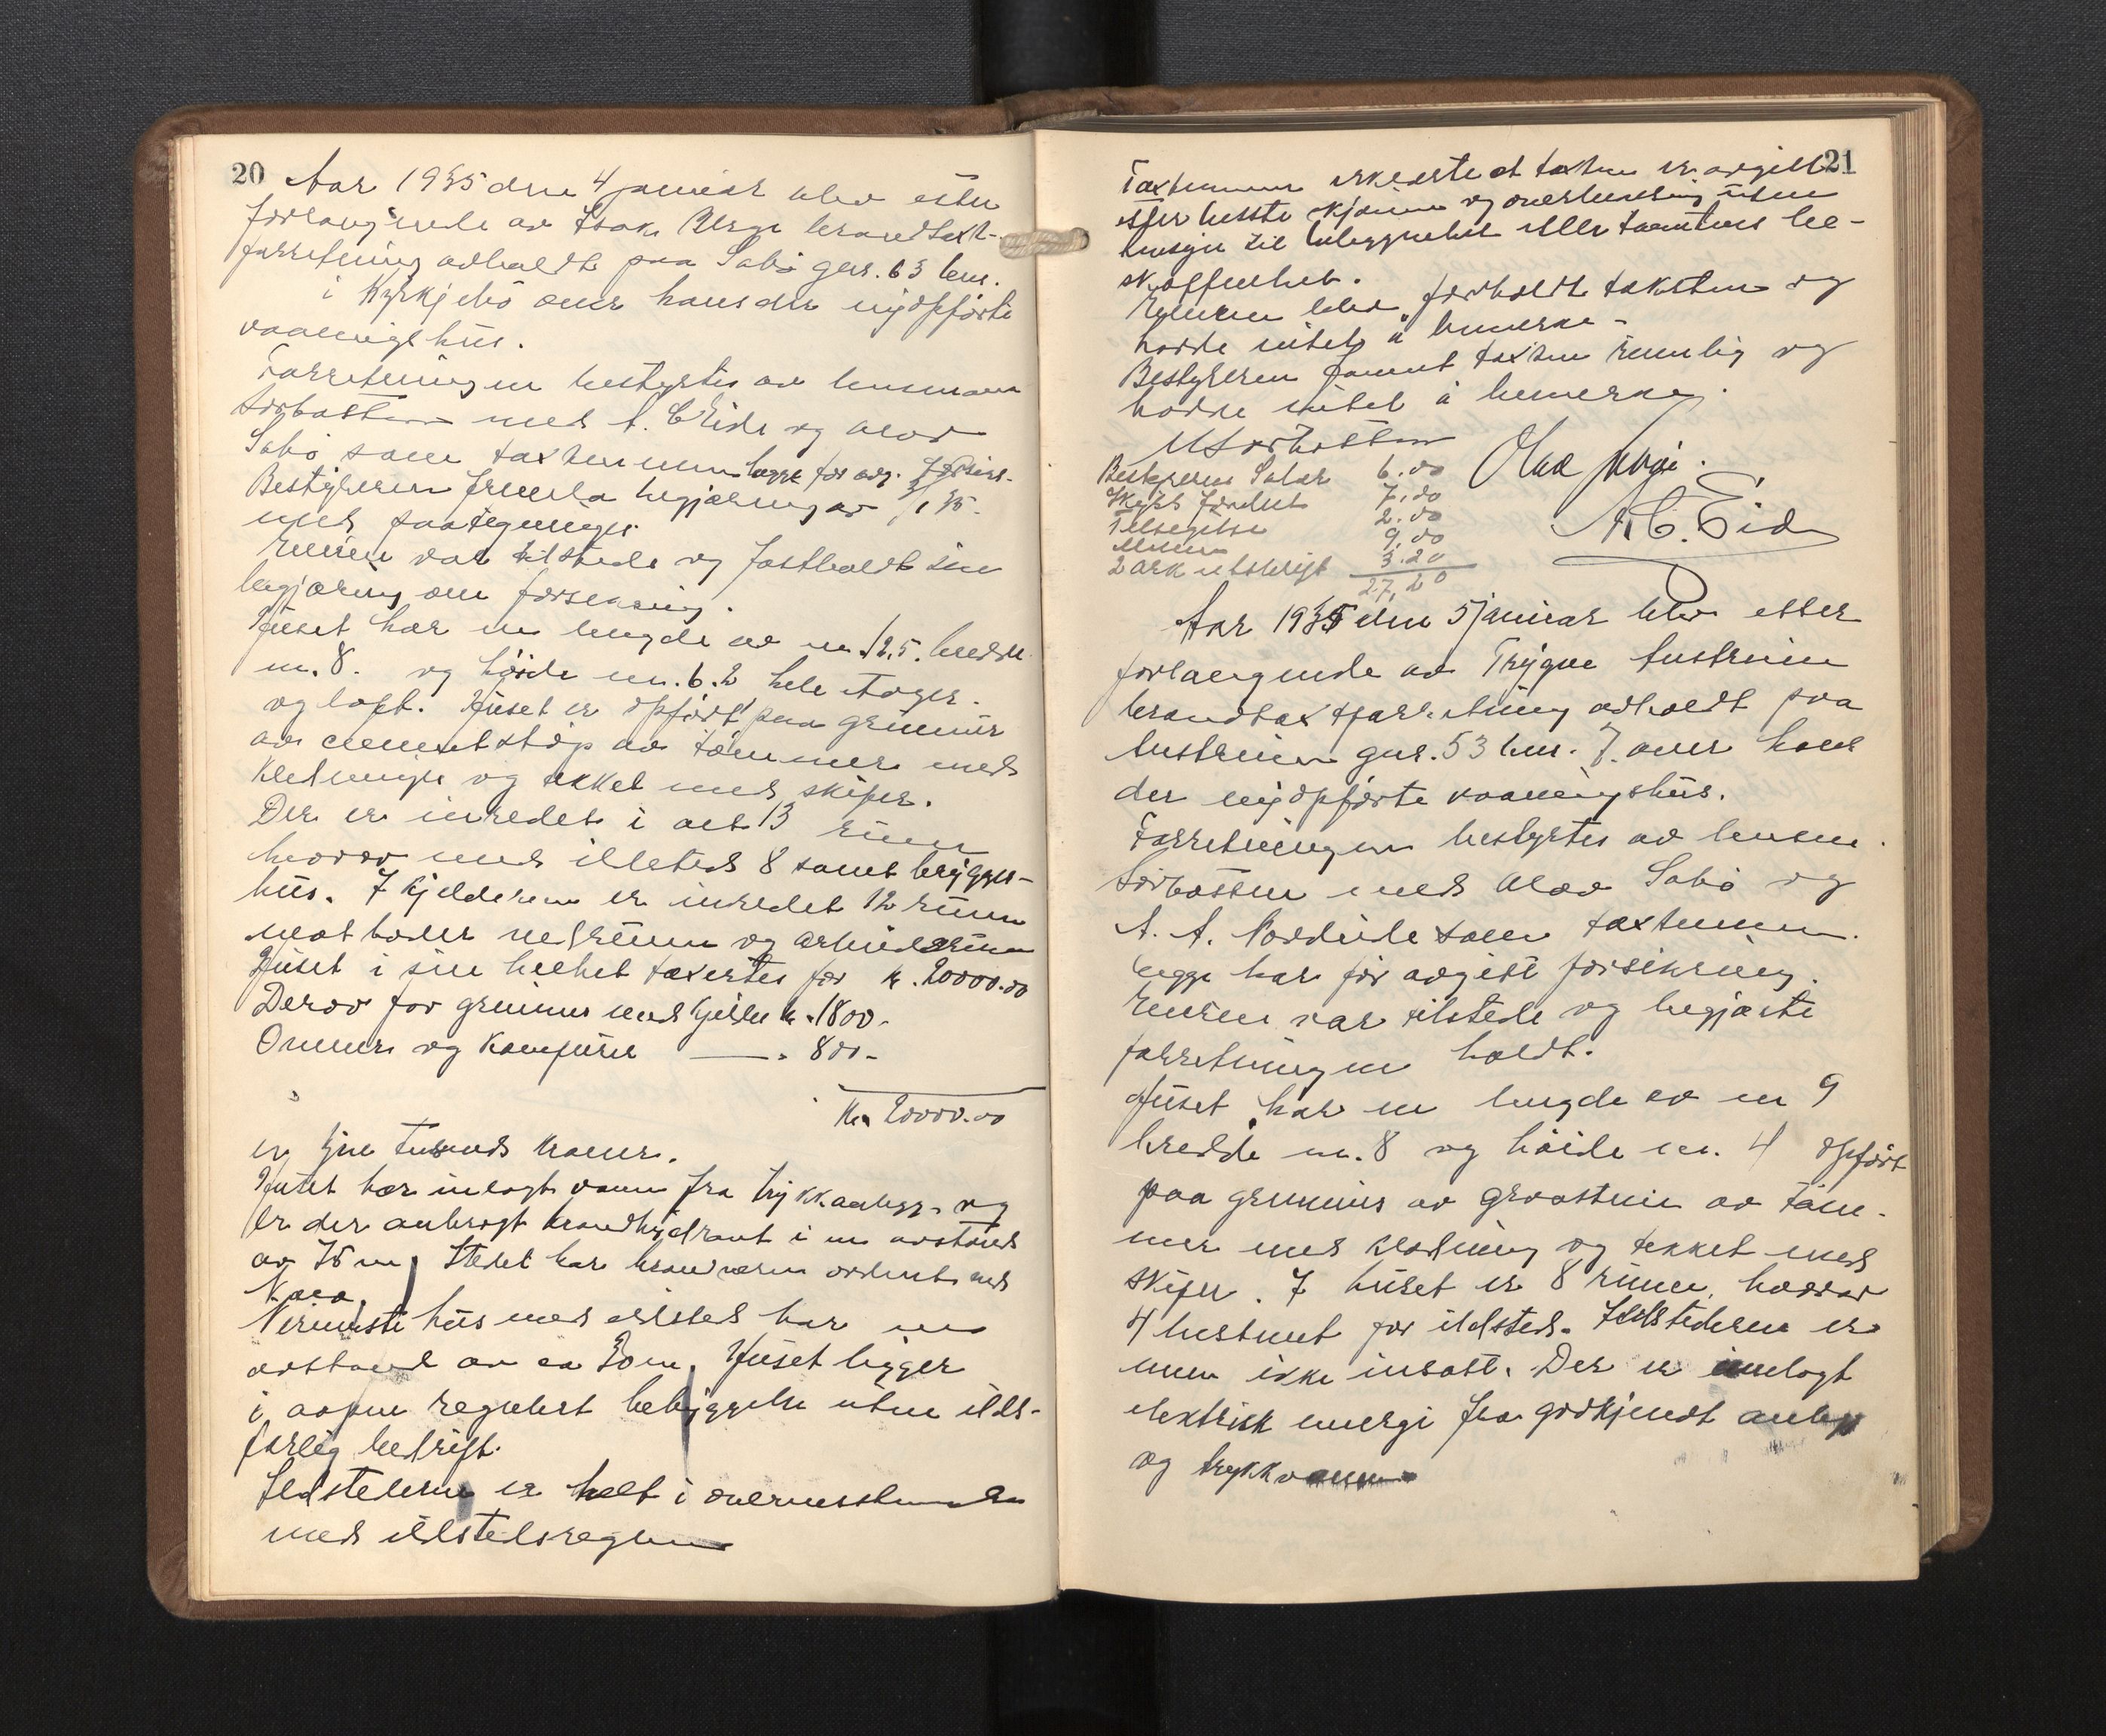 20
Aar 1935 den 4 januar blev etter
forlangende av Isak Berge brandtakst-
forretning avholdt paa Sabø gnr. 63 bnr.
i Kyrkjebø over hans der nyopførte
vaaningshus.
Forretningen bestyrtes av lensmann
Sørbotten med A. C. Eide og Olav
Sabø som taxtmenn begge før avg. forsikr.
Bestyreren fremla begjæring av 3/1 35
med paategninger.
Eieren var tilstede og fastholdt sin
begjæring om forsikring.
Huset har en lengde av m. 12.5. bredde
m. 8. og høide m. 6. 2 hele etager
og loft. Huset er opført paa grunmur
av cementstøp av tømmer med
kledninger og tekket med skifer.
Der er inredet i alt 13 rum
hvorav med illsted 8 samt brygger-
hus. I kjelderen er inredet 12 rum
mat boder vedrum og arbeidsrum
Huset i sin helhet taxertes for kr. 20000.00
Derav for grunmur med kjelder kr. 1800.-
Ovner og komfurer — " 800 -
Kr. 20000.00
er tjue tusend kroner.
Huset har inlagt vann fra trykkanlegg og
er der anbragt brandhydrant i en avstand
av 75 m. Stedet har brandvern ordnet med
Nærmeste hus med ildsted har en
avstand av ca 30 m. Huset ligger
i aapen regulert bebyggelse uten ilds-
farlig bedrift.
Ildstederne er helt i overensstemmelse
med ildstedsreglene
21
Taxtmennene erklærte at taxten er avgitt
efter beste skjønn og overbevisning uten
hensyn til beleggenhet eller tomtens be-
skaffenhet.
Eieren blev forholdt taksten og
hadde intet å bemerke -
Bestyreren fannt taxten rimelig og
hadde intet å bemerke.
M Sørbotten Olav Sabø.
Bestyrerens Salær 6.00
Skyss fordelt 7.00
Tilsigelse 2.00 A. C. Eide
9.00
2 ark utskrift 3.20
27,20
Aar 1935 den 5 januar blev etter
forlangende av Trygve Austreim
brandtaxtforretning avholdt paa
Austreim gnr. 53 bnr. 7. over hans
der nyopførte vaaningshus.
Forretningen bestyrtes av lensm.
Sørbotten med Olav Sabø og
A. A. Nordeide som taxtmenn.
begge har før avgitt forsikring.
Eieren var tilstede og begjærte
forretningen holdt.
Huset har en lengde av m 9
bredde m. 8 og høide m. 4 opført
paa grunmur av graastein av tøm-
mer med kledning og tekket med
skifer. I huset er 8 rum, hvorav
4 bestemt for ildsted. Ildstederne er
enn ikke insatt. Der er innlagt
elektrisk energi fra godkjendt anlegg
og trykkvann